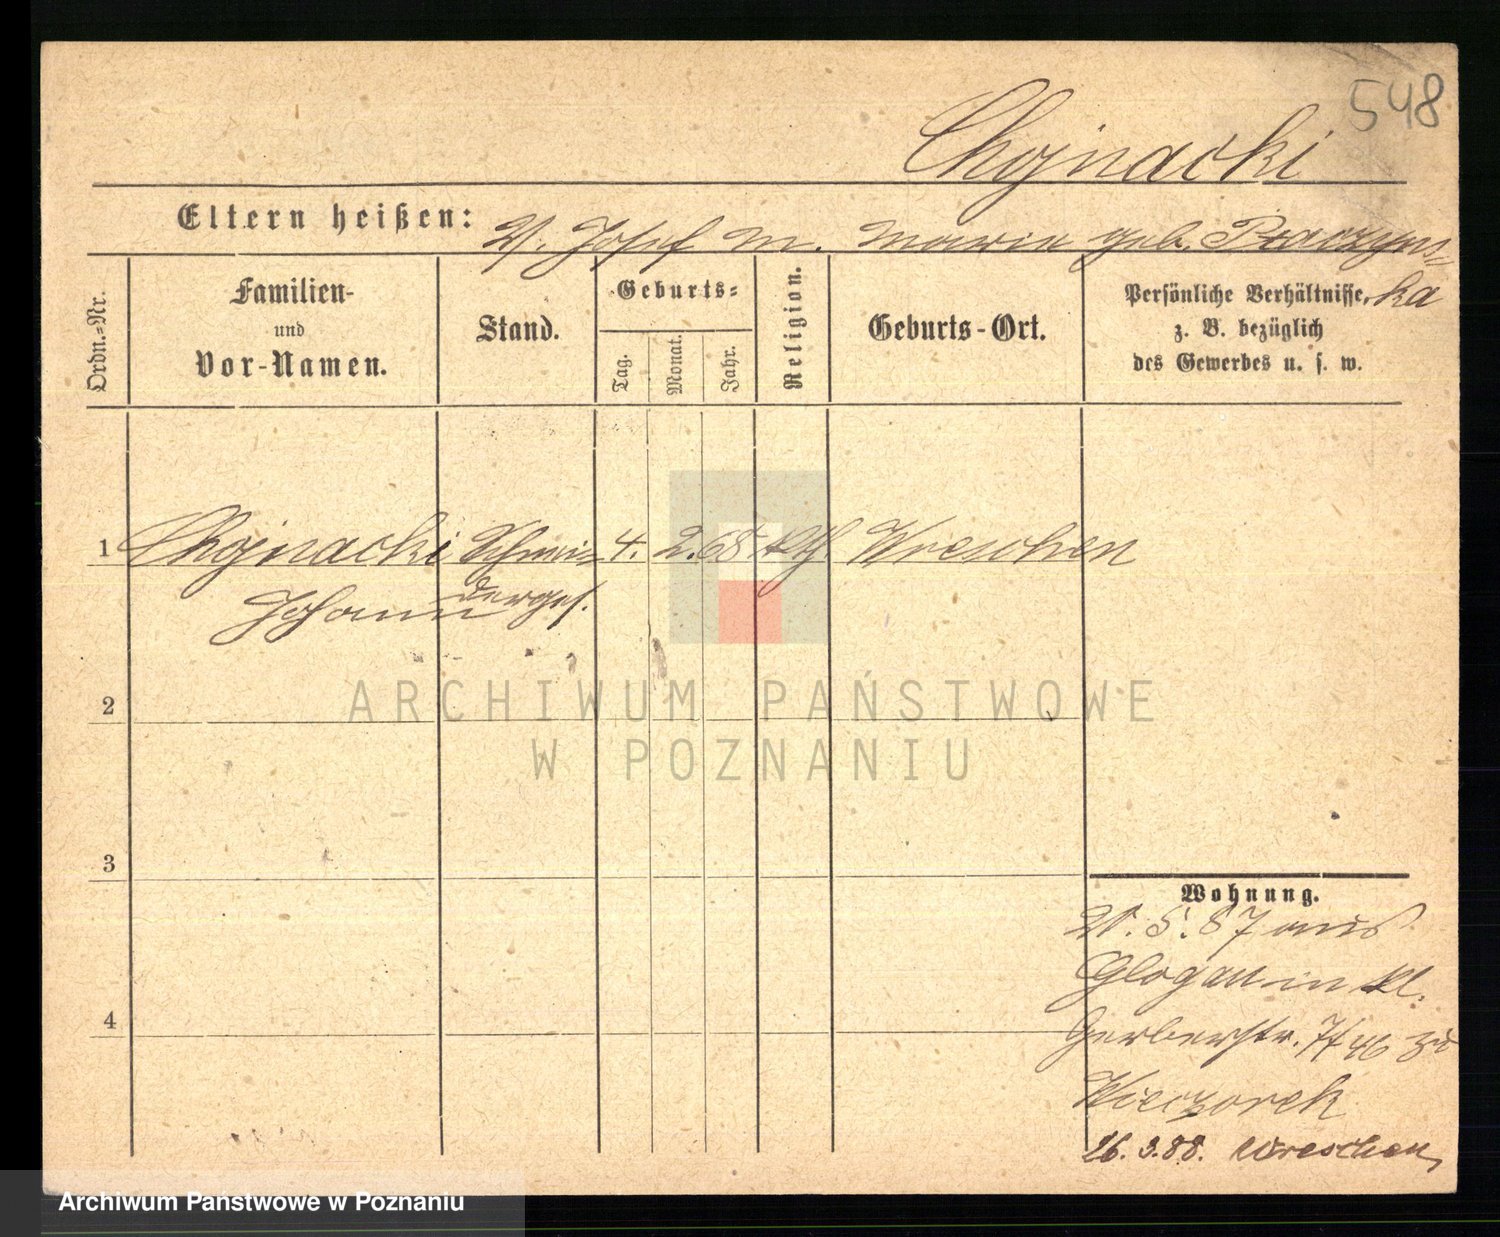 548
Chojnacki
Eltern heißen: V. Josef M. Maria geb. Praczyns=
ka
Ordn.=Nr.
Familien-
und
Vor-Namen.
Stand.
Geburts=
Tag.
Monat.
Jahr.
Religion.
Geburts-Ort.
Persönliche Verhältnisse,
z. B. bezüglich
des Gewerbes u. s. w.
1 Chojnacki Schnei= 4. 2. 68 kth Wreschen
Johann derges.
2
3
4
Wohnung.
21. 5. 87 aus
Glogau in kl.
Gerberstr. 7/46 zu
Wieczorek
26. 3. 88. Wreschen,
ARCHIWUM PAŃSTWOWE
W POZNANIU
Archiwum Państwowe w Poznaniu